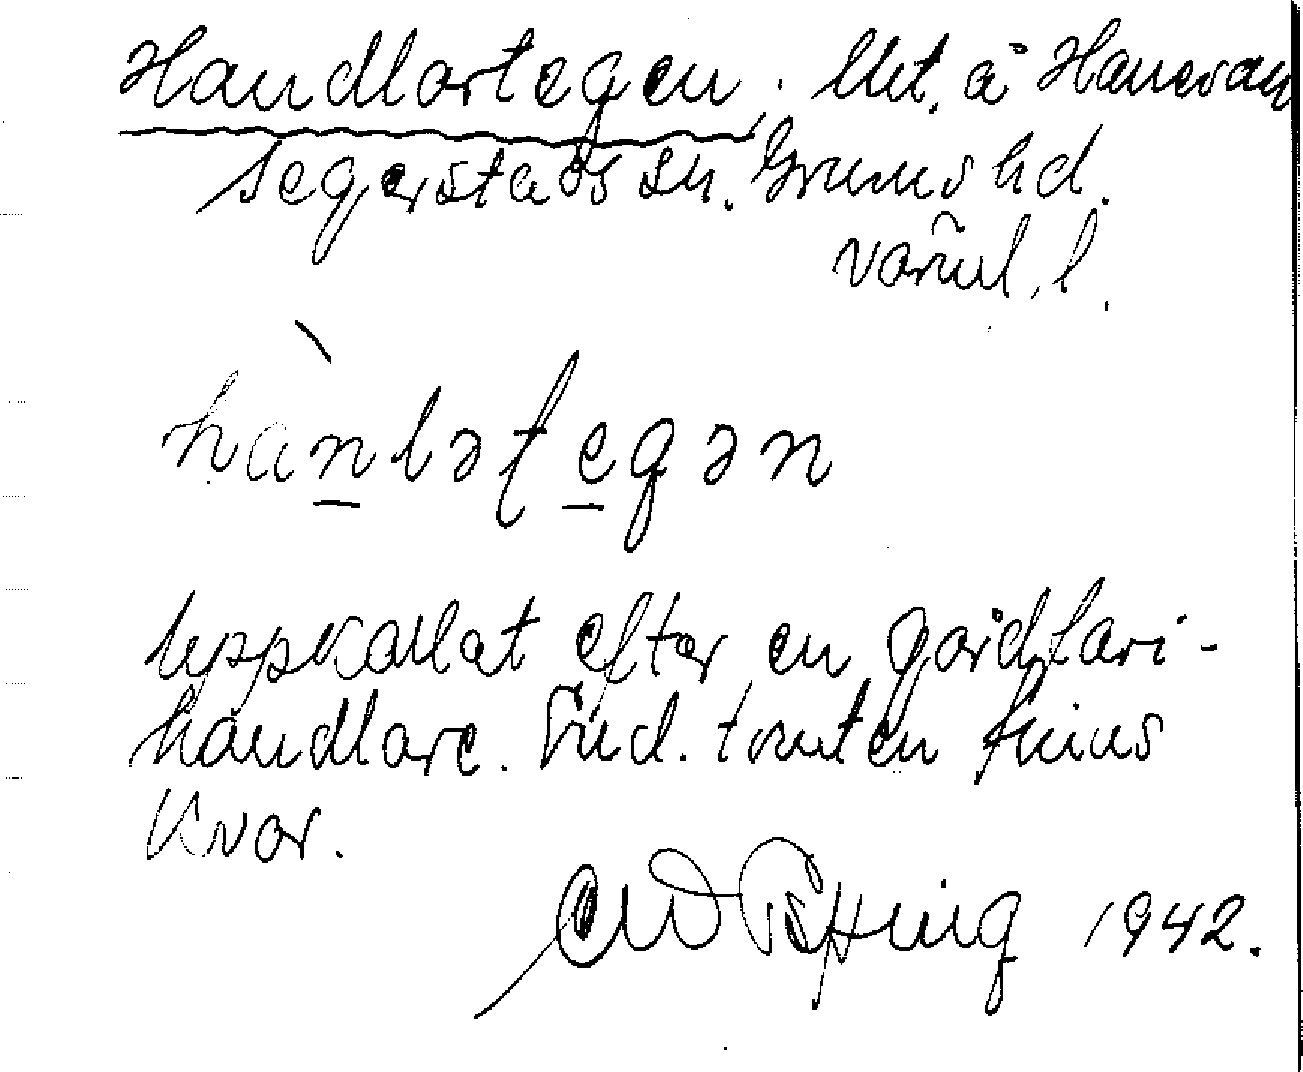 Handlartegen. Utt. å Hanesan
Segerstads sn. Grums hd.
Värml. l.
hànləʈegən
Uppkallat efter en gårdfari-
handlare. Vid. tomten finns
kvar.
1942.